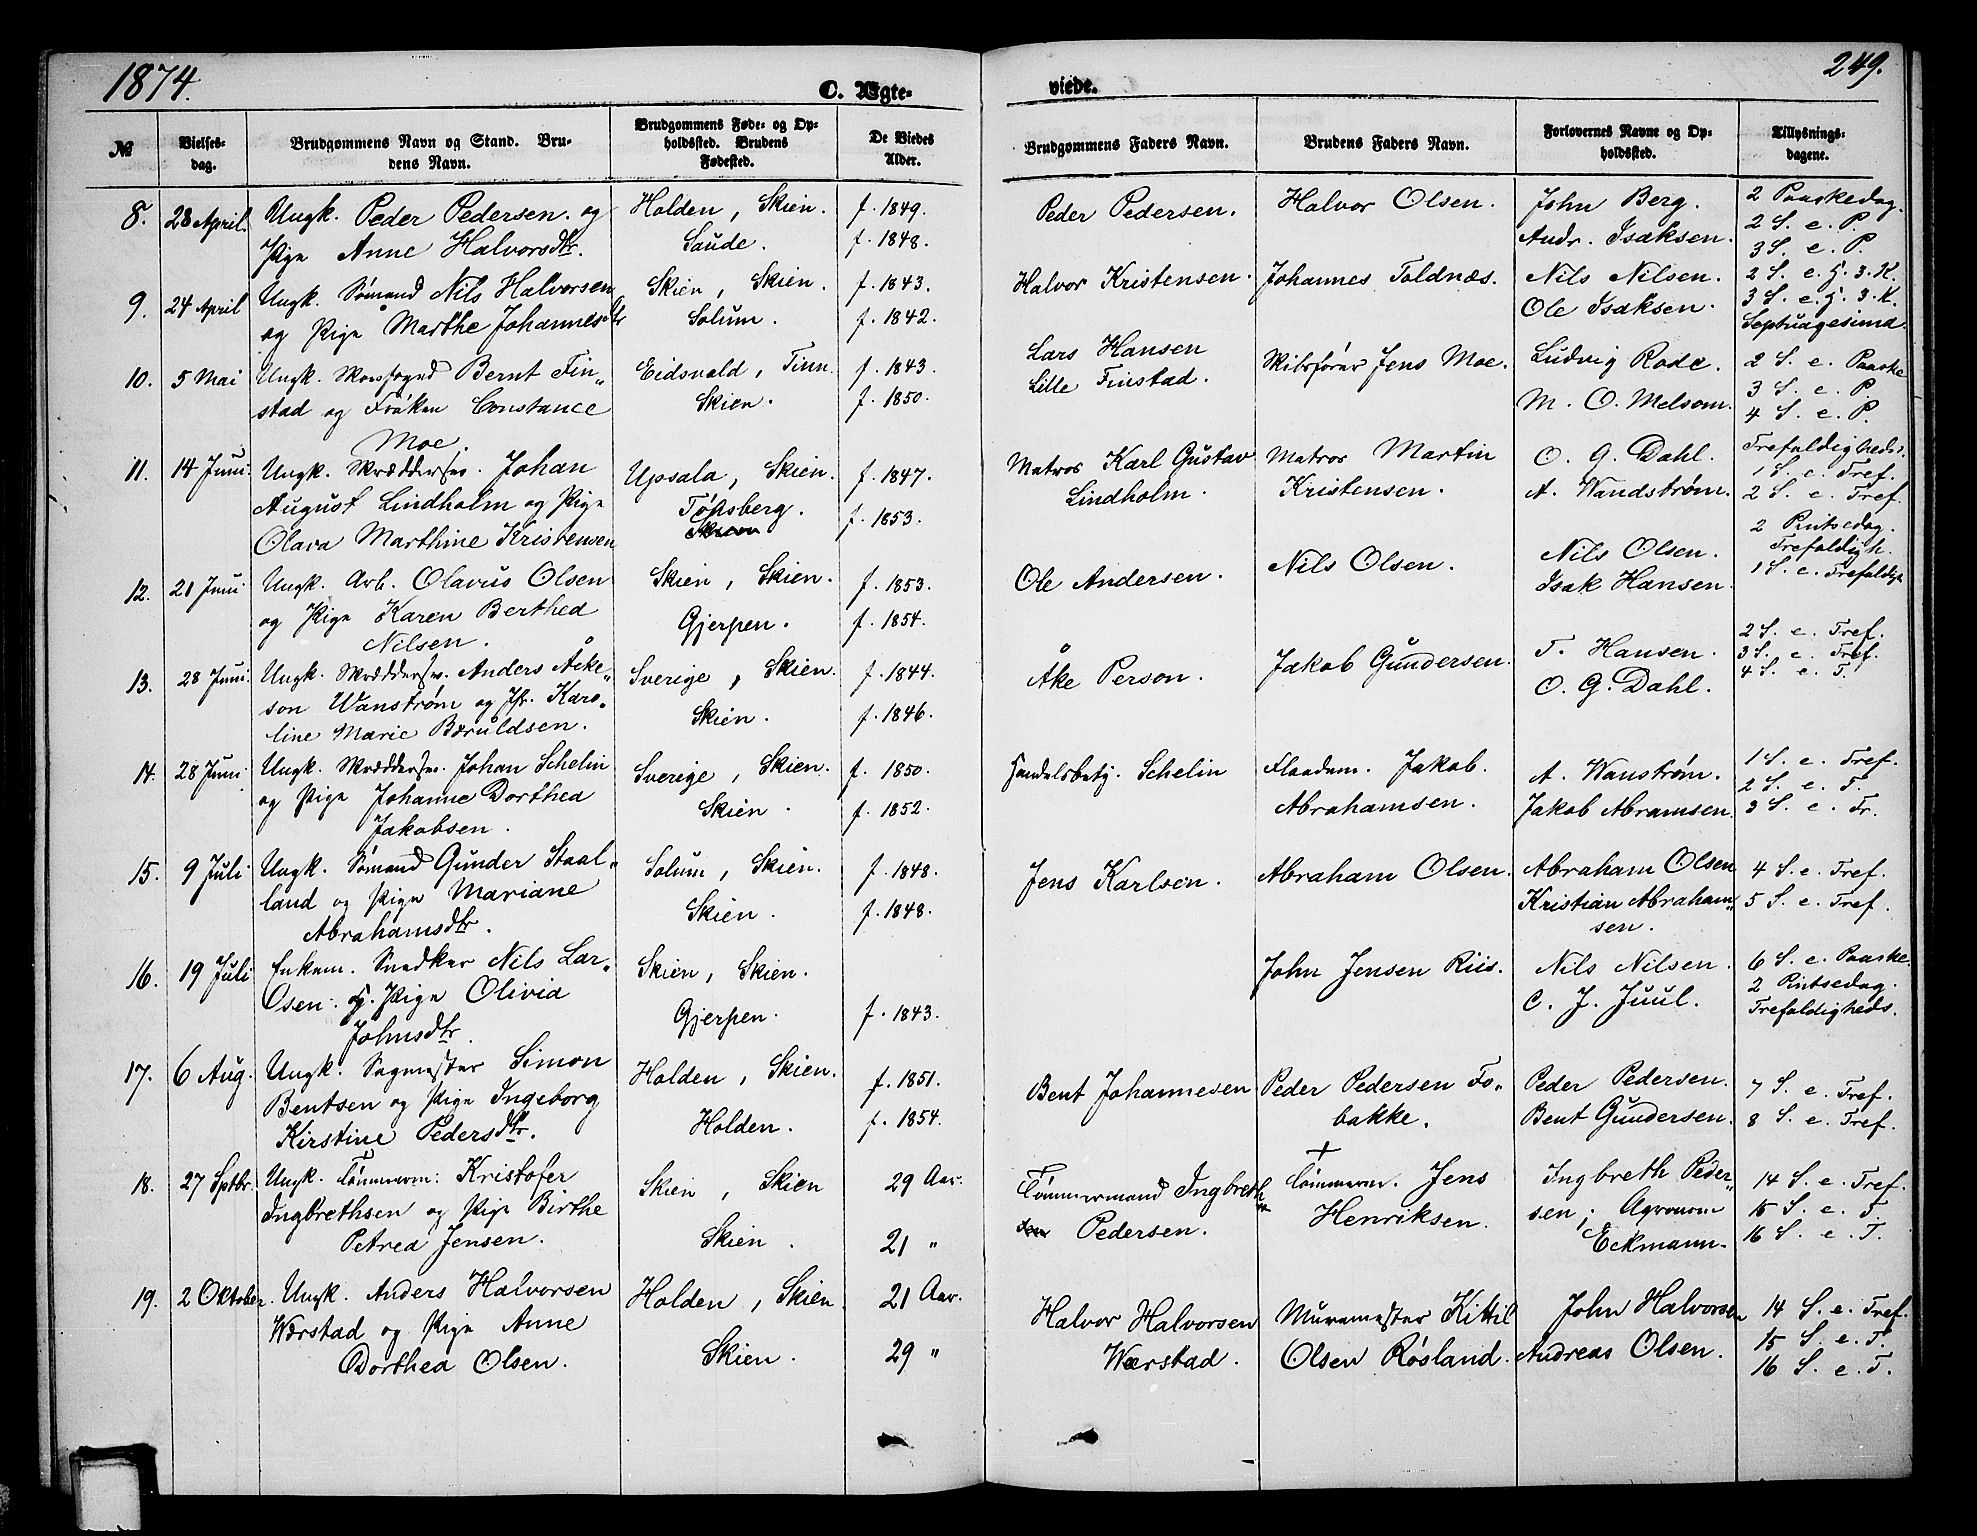 1874.
C. Ægte-
viede.
249.
№
Vielses-
dag.
Brudgommens Navn og Stand. Bru-
dens Navn.
Brudgommens Føde- og Op-
holdssted. Brudens
Fødested.
De Viedes
Alder.
Brudgommens Faders Navn.
Brudens Faders Navn.
Forlovernes Navne og Op-
holdssted.
Tillysnings-
dagene.
8.
28 April.
Ungk. Peder Pedersen. og
Pige Anne Halvorsdtr.
Holden, Skien.
Saude.
f. 1849.
f. 1848.
Peder Pedersen.
Halvor Olsen.
John Berg.
Andr. Isaksen.
2 Paaskedag.
2 S. e. P.
3 S. e. P.
9.
24 April
Ungk. Sømand Nils Halvorsen
og Pige Marthe Johannesdtr
Skien, Skien.
Solum.
f. 1843.
f. 1842.
Halvor Kristensen.
Johannes Toldnæs.
Nils Nilsen.
Ole Isaksen.
2 S. e. H. 3. K.
3 S. e. H. 3. K.
Septuagesima.
10.
5 Mai
Ungk. Skovfoged Bernt Fin„
stad og Frøken Constance
Moe.
Eidsvold, Tinn
Skien.
f. 1843.
f. 1850.
Lars Hansen
Lille Finstad.
Skibsfører Jens Moe.
Ludvig Rode.
M. O. Melsom.
2 S. e. Paaske
3 S. e. P.
4 S. e. P.
11.
14 Juni.
Ungk. Skræddersv. Johan
August Lindholm og Pige
Olava Marthine Kristensen
Upsala, Skien.
Tønsberg.
Skien
f. 1847.
f. 1853.
Matros Karl Gustav
Lindholm.
Matros Martin
Kristensen.
O. G. Dahl.
A. Wandstrøm.
Trefoldigheds.
1 S. e. Tref.
2 S. e. Tref.
12.
21 Juni
Ungk. Arb. Olavus Olsen
og Pige Karen Berthea
Nilsen.
Skien, Skien.
Gjerpen.
f. 1853.
f. 1854.
Ole Andersen.
Nils Olsen.
Nils Olsen.
Isak Hansen.
2 Pintsedag.
Trefoldigh.
1 S. e. Trefoldigh
13.
28 Juni.
Ungk. Skræddersv. Anders Åke„
son Wanstrøm og Jfr. Karo„
line Marie Børuldsen.
Sverige, Skien.
Skien.
f. 1844.
f. 1846.
Åke Person.
Jakob Gundersen.
T. Hansen.
O. G. Dahl.
2 S. e. Tref.
3 S. e. Tref.
4 S. e. T.
14.
28 Juni.
Ungk. Skræddersv. Johan Schelin
og Pige Johanne Dorthea
Jakobsen.
Sverige, Skien.
Skien.
f. 1850.
f. 1852.
Handelsbetj. Schelin
Flaadem. Jakob.
Abrahamsen.
A. Wanstrøm.
Jakob Abramsen.
1 S. e. Tref.
2 S. e. T.
3 S. e. Tr.
15.
9 Juli
Ungk. Sømand Gunder Staal„
land og Pige Mariane
Abrahamsdtr.
Solum, Skien.
Skien.
f. 1848.
f. 1848.
Jens Karlsen.
Abraham Olsen.
Abraham Olsen
Kristian Abraham„
sen.
4 S. e. Tref.
5 S. e. Tref.
16.
19 Juli
Enkem. Snedker Nils Lar„
Osen. og. Pige Olivia
Johnsdtr.
Skien, Skien.
Gjerpen.
f. 1843.
John Jensen Riis.
Nils Nilsen.
C. J. Juul.
6 S. e. Paaske.
2 Pintsedag.
Trefoldigheds.
17.
6 Aug.
Ungk. Sagmester Simon
Bentsen og Pige Ingeborg
Kirstine Pedersdtr.
Holden, Skien.
Holden.
f. 1851.
f. 1854.
Bent Johannesen
Peder Pedersen Fo„
bakke.
Peder Pedersen.
Bent Gundersen.
7 S. e. Tref.
8 S. e. Tref.
18.
27 Sptbr.
Ungk. Tømmerm: Kristofer
Ingbrethsen og Pige Birthe
Petrea Jensen.
Skien, Skien
Skien.
29 Aar.
21 "
Tømmermand Ingbreth
Pedersen.
+
Tømmerm. Jens
Henriksen.
Ingbreth Peder„
sen; Agronom
Eckmann.
14 S. e. Tref.
15 S. e. T.
16 S. e. T.
19.
2 Oktober.
Ungk. Anders Halvorsen
Wærstad og Pige Anne
Dorthea Olsen.
Holden, Skien.
Skien.
21 Aar.
29 "
Halvor Halvorsen
Wærstad.
Muremester Kittil
Olsen Røsland.
John Halvorsen
Andreas Olsen.
14 S. e. Tref.
15 S. e. T.
16 S. e. T.